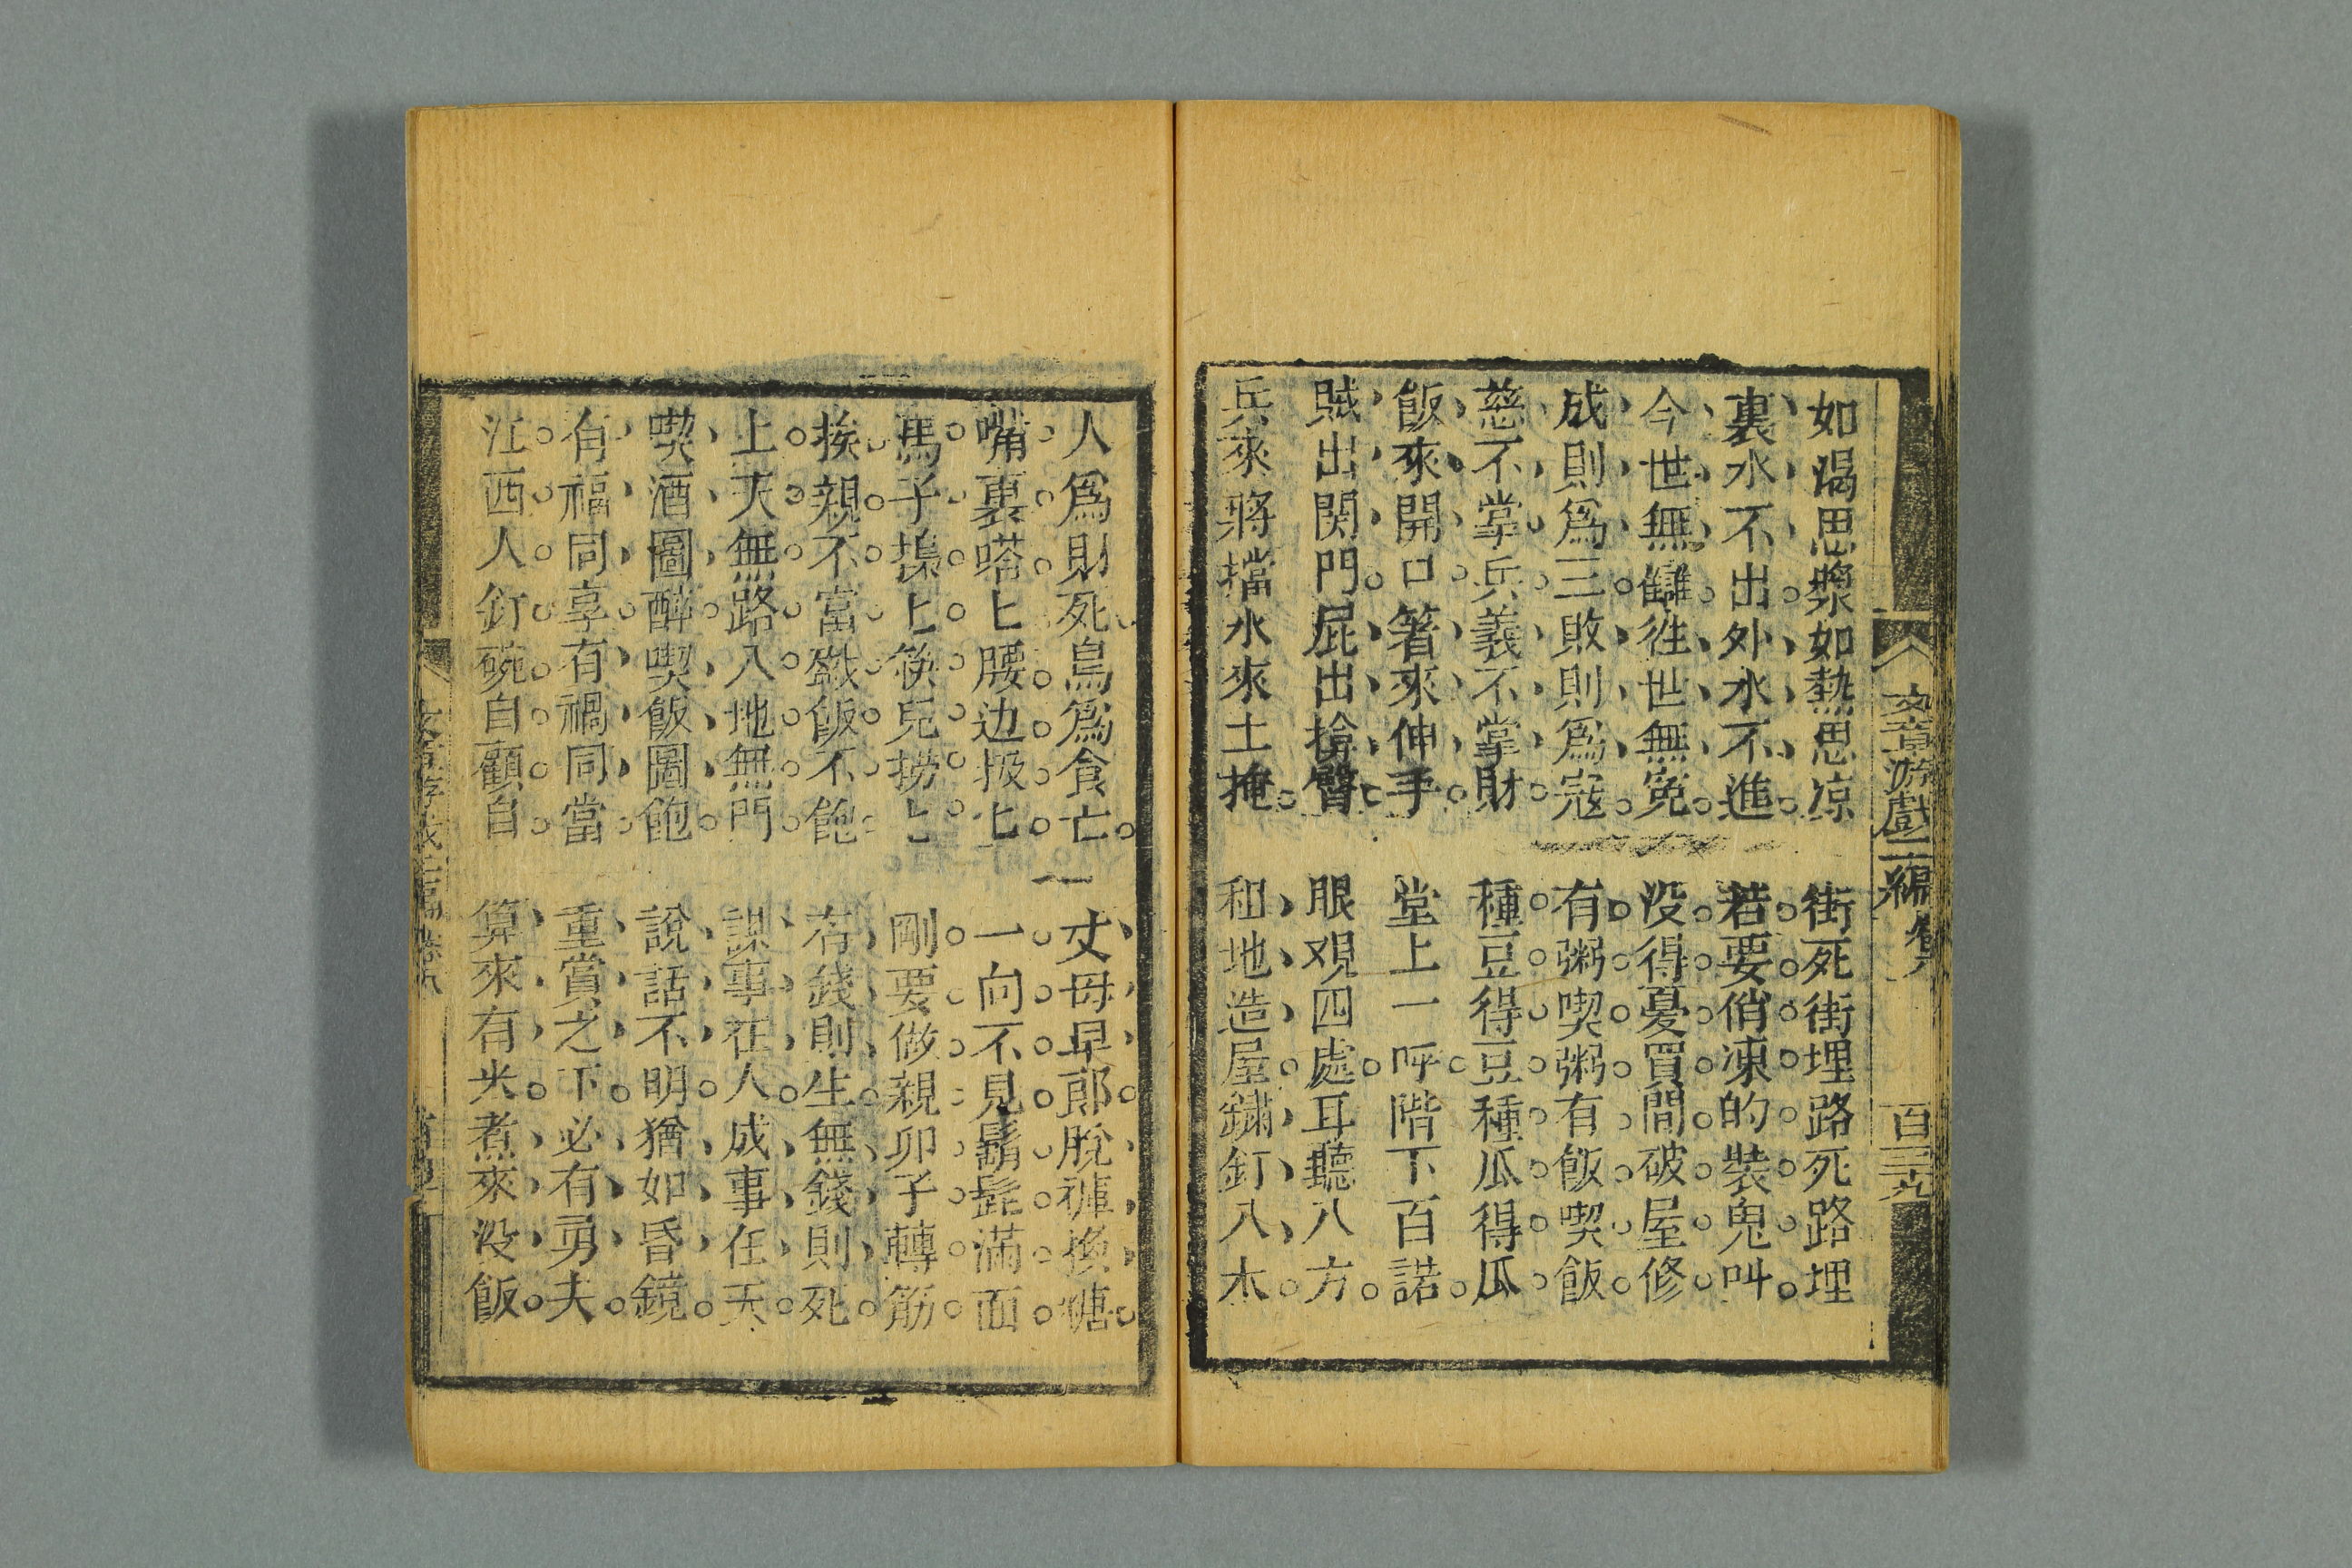 文章游戲二編 卷八 百三九
如渴思漿如熱思凉 街死街埋路死路埋
裏水不出外水不進 若要俏凍的裝鬼叫
今世無讎徃世無冤 没得憂買間破屋修
成則爲王敗則爲寇 有粥喫粥有飯喫飯
慈不掌兵義不掌財 種豆得豆種瓜得瓜
飯來開口箸來伸手 堂上一呼階下百諾
賊出関門屁出掩臀 眼观四處耳聽八方
兵來將擋水來土掩 租地造屋鏽釘入木
人爲財死鳥爲食亡 丈母早郎脫褲換糖
嘴裏嗒匕腰边扱匕 一向不見鬍髭滿面
馬子 匕筷兒撈匕 剛要做親卵子轉筋
挨親不富 飯不飽 有錢則生無錢則死
上天無路入地無門 謀事在人成事在天
喫酒圖醉喫飯圖飽 說話不明猶如昏鏡
有福同享有禍同當 重賞之下必有勇夫
江西人釘碗自顧自 算來有米煮來没飯